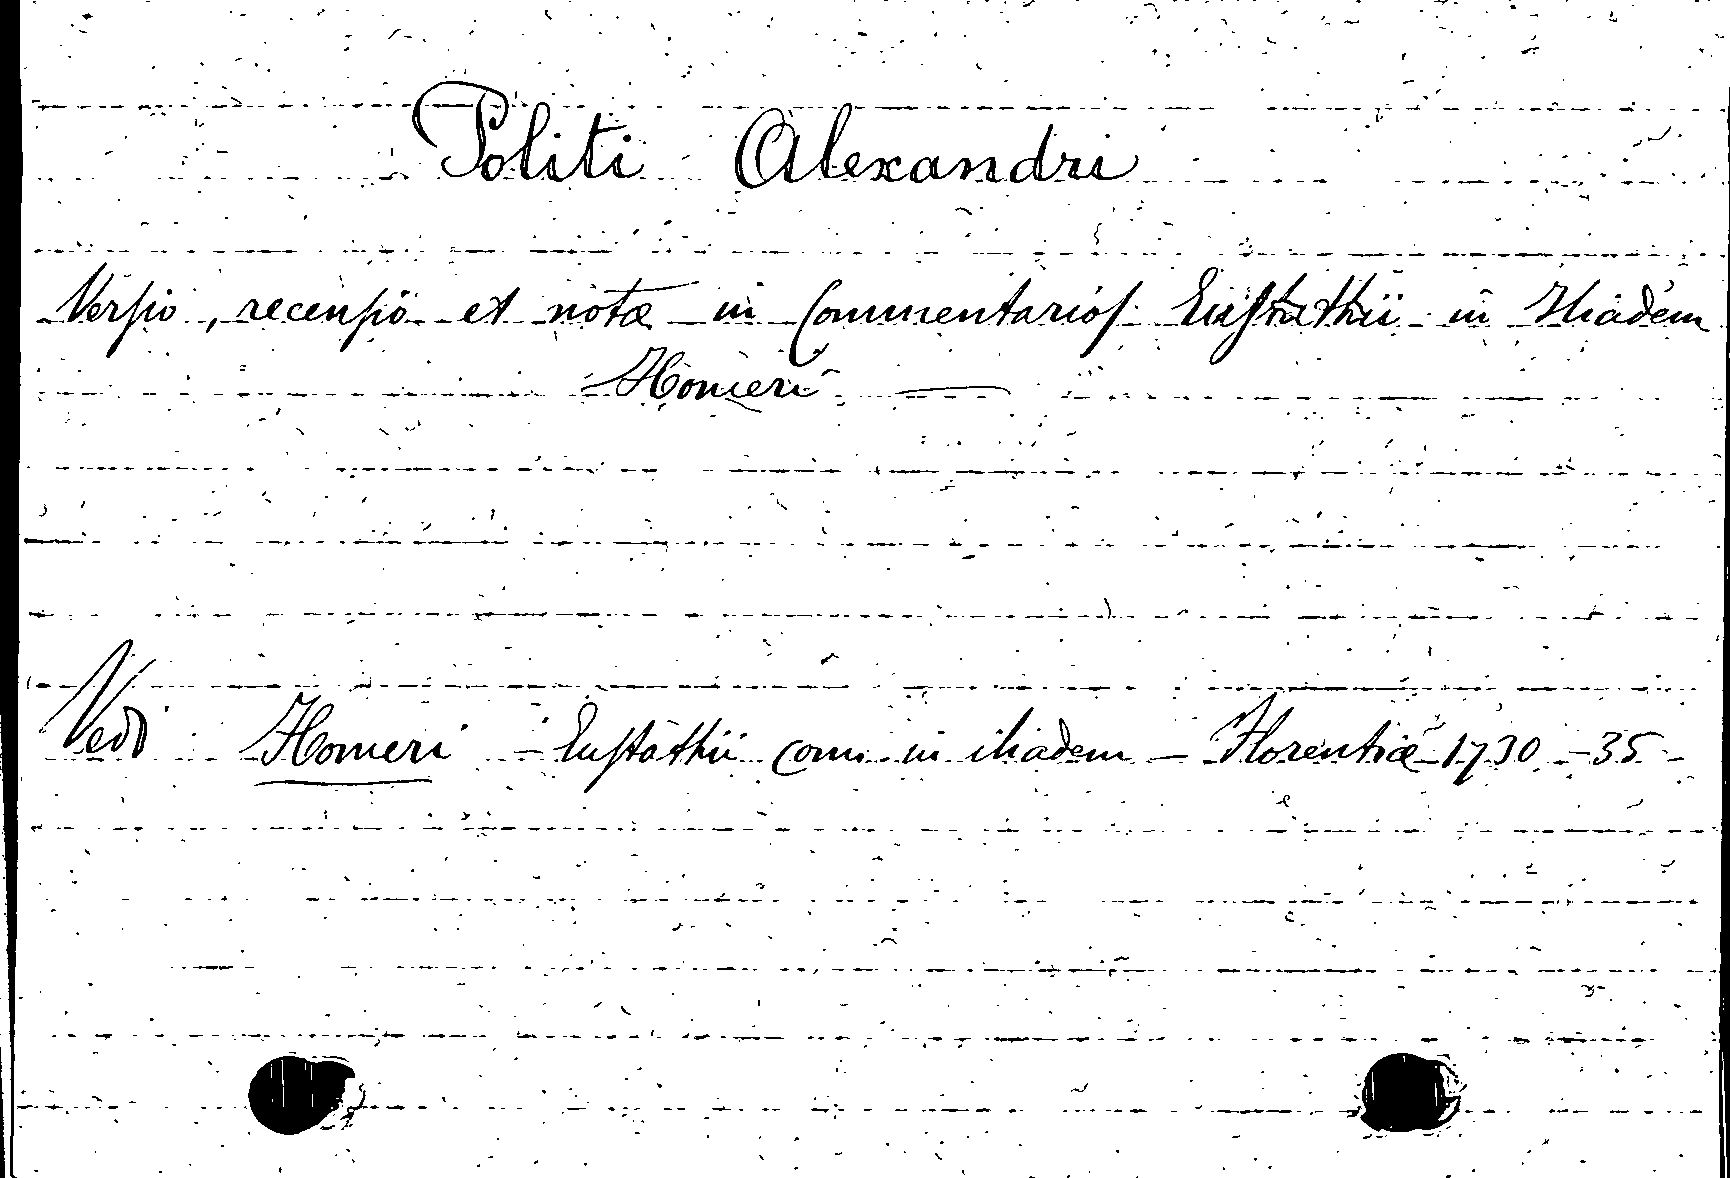 Politi Alexandri
Versio, recensio et notæ in Commentarios Eustathii in Iliadem
Homeri —
Vedi Homeri - Eustathii com. in iliadem - Florentiæ 1730 - 35 -